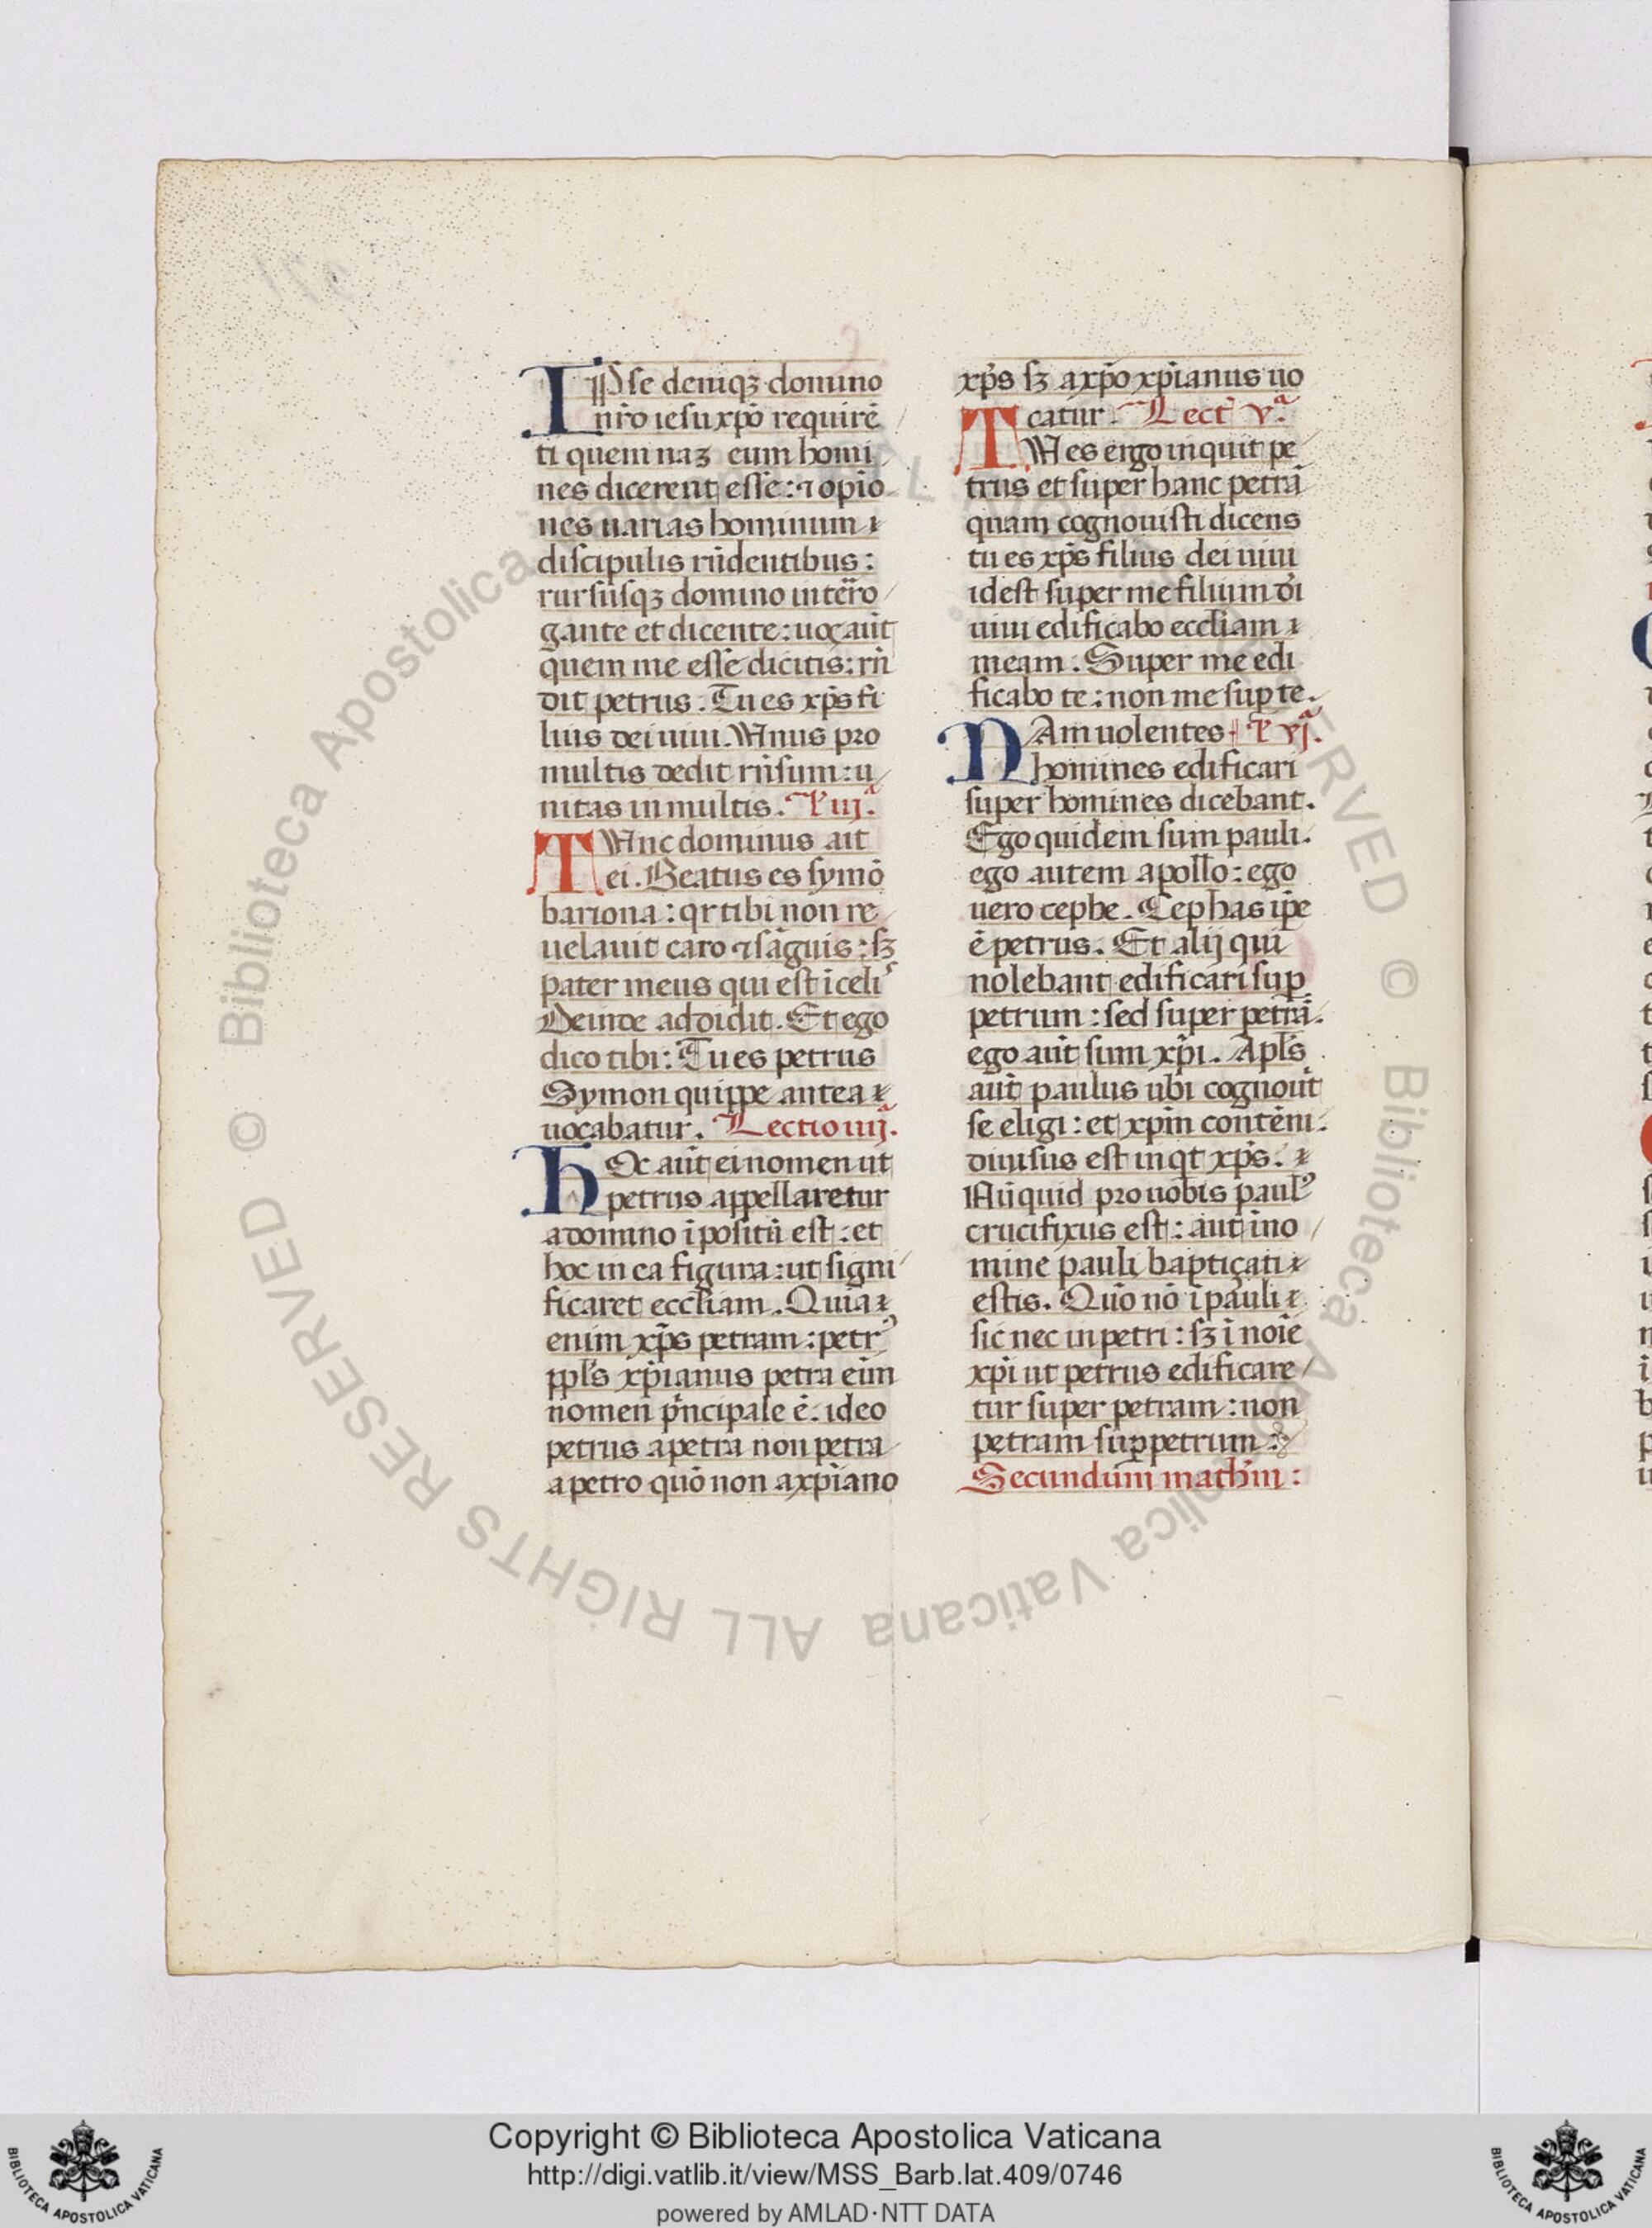 IPse deniqꝫ domino
nr̄o iesu xp̄o requirē
ti quem naꝫ eum homi
nes dicerent esse: ⁊ opīo
nes uarias hominum
discipulis rn̄dentibus:
rursusqꝫ domino inter̄o
gante et dicente: uoç aut̄
quem me esse dicitis: rn̄
dit petrus. Tu es xp̄s fi
lius dei uiui. Vnus pro
multis dedit rn̄sum: u
nitas in multis. L' iij.ª
TVnc dominus ait
ei. Beatus es symō
bariona: qr tibi non re
uelauit caro ⁊ sāguis: sꝫ
pater meus qui est ī celis
Deinde addidit. Et ego
dico tibi: Tu es petrus
Symon quippe antea
uocabatur. Lectio iiij.ª
HOc aut̄ ei nomen ut
petrus appellaretur
a domino īpositū est: et
hoc in ea figura: ut signi
ficaret eccl̄iam. Quia
enim xp̄s petram: petrꝰ
ppl̄s xp̄ianus petra eīm
nomen p̄ncipale ē. ideo
petrus a petra non petra
a petro quō non a xp̄iano
xp̄s sꝫ a xp̄o xp̄ianus uo
catur. Lect̄ v.ª
TV es ergo inquit pe
trus et super hanc petrā
quam cognouisti dicens
tu es xp̄s filius dei uiui
idest super me filium dī
uiui edificabo eccl̄iam
meam. Super me edi
ficabo te: non me sup te.
NAm uolentes L' vj.ª
homines edificari
super homines dicebant.
Ego quidem sum pauli.
ego autem apollo: ego
uero cephe. Cephas ip̄e
ē petrus. Et alij qui
nolebant edificari sup̱
petrum: sed super petrā.
ego aut̄ sum xp̄i. Apl̄s
aut̄ paulus ubi cognouīt
se eligi: et xp̄m contēni.
diuisus est inqt xp̄s.
Nūquid pro uobis paulꝰ
crucifixus est: aut īno
mine pauli bapticati
estis. Quō nō ī pauli
sic nec in petri: sꝫ ī noīe
xp̄i ut petrus edificare
tur super petram: non
petram sup̱ petrum:
Secundum math̄m:
© Biblioteca Apostolica Vaticana ALL RIGHTS RESERVED
© Biblioteca Apostolica Vaticana ALL RIGHTS RESERVED
BIBLIOTECA APOSTOLICA VATICANA
Copyright © Biblioteca Apostolica Vaticana
http://digi.vatlib.it/view/MSS_Barb.lat.409/0746
powered by AMLAD·NTT DATA
BIBLIOTECA APOSTOLICA VATICANA